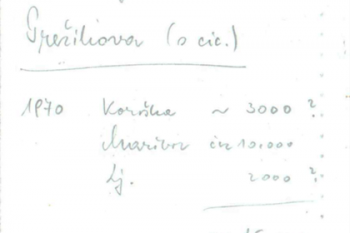 Prežihova (s cic.)
1970 Koroška ~ 3000 ?
Maribor 10.000
Lj. 2000 ?